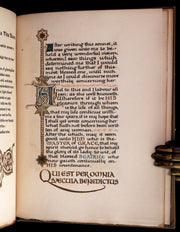 After writing this sonnet, it
was given unto me to be-
hold a very wonderful vision,
wherein I saw things which
determined me that I would
say nothing further of this
most blessed one, until such
time as I could discourse more
worthily concerning her.
And to this end I labour all
I can; as she well knoweth.
Wherefore if it be HIS
pleasure through whom
is the life of all things, that
my life continue with me
a few years, it is my hope that
I shall yet write concerning her
what hath not before been writ-
ten of any woman.
After the which, may it
seem good unto HIM who is the
MASTER of GRACE, that my
spirit should go hence to behold
the glory of its lady: to wit, of
that blessed BEATRICE who
now gazeth continually on
HIS countenance
QUI EST PER OMNIA
SÆCULA BENEDICTUS